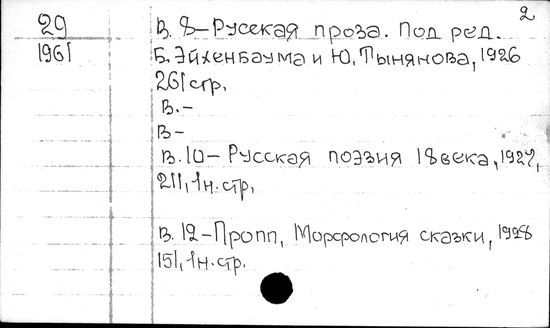 2
29 В. 8 – Русская проза. Под ред.
1961 Б. Эйхенбаума и Ю. Тынянова, 1926
261 стр.
В. –
В –
В. 10 – Русская поэзия 18 века, 1927,
211, 1 н. стр,
В. 12 – Пропп, Морфология сказки, 1928
151, 1 н. стр.